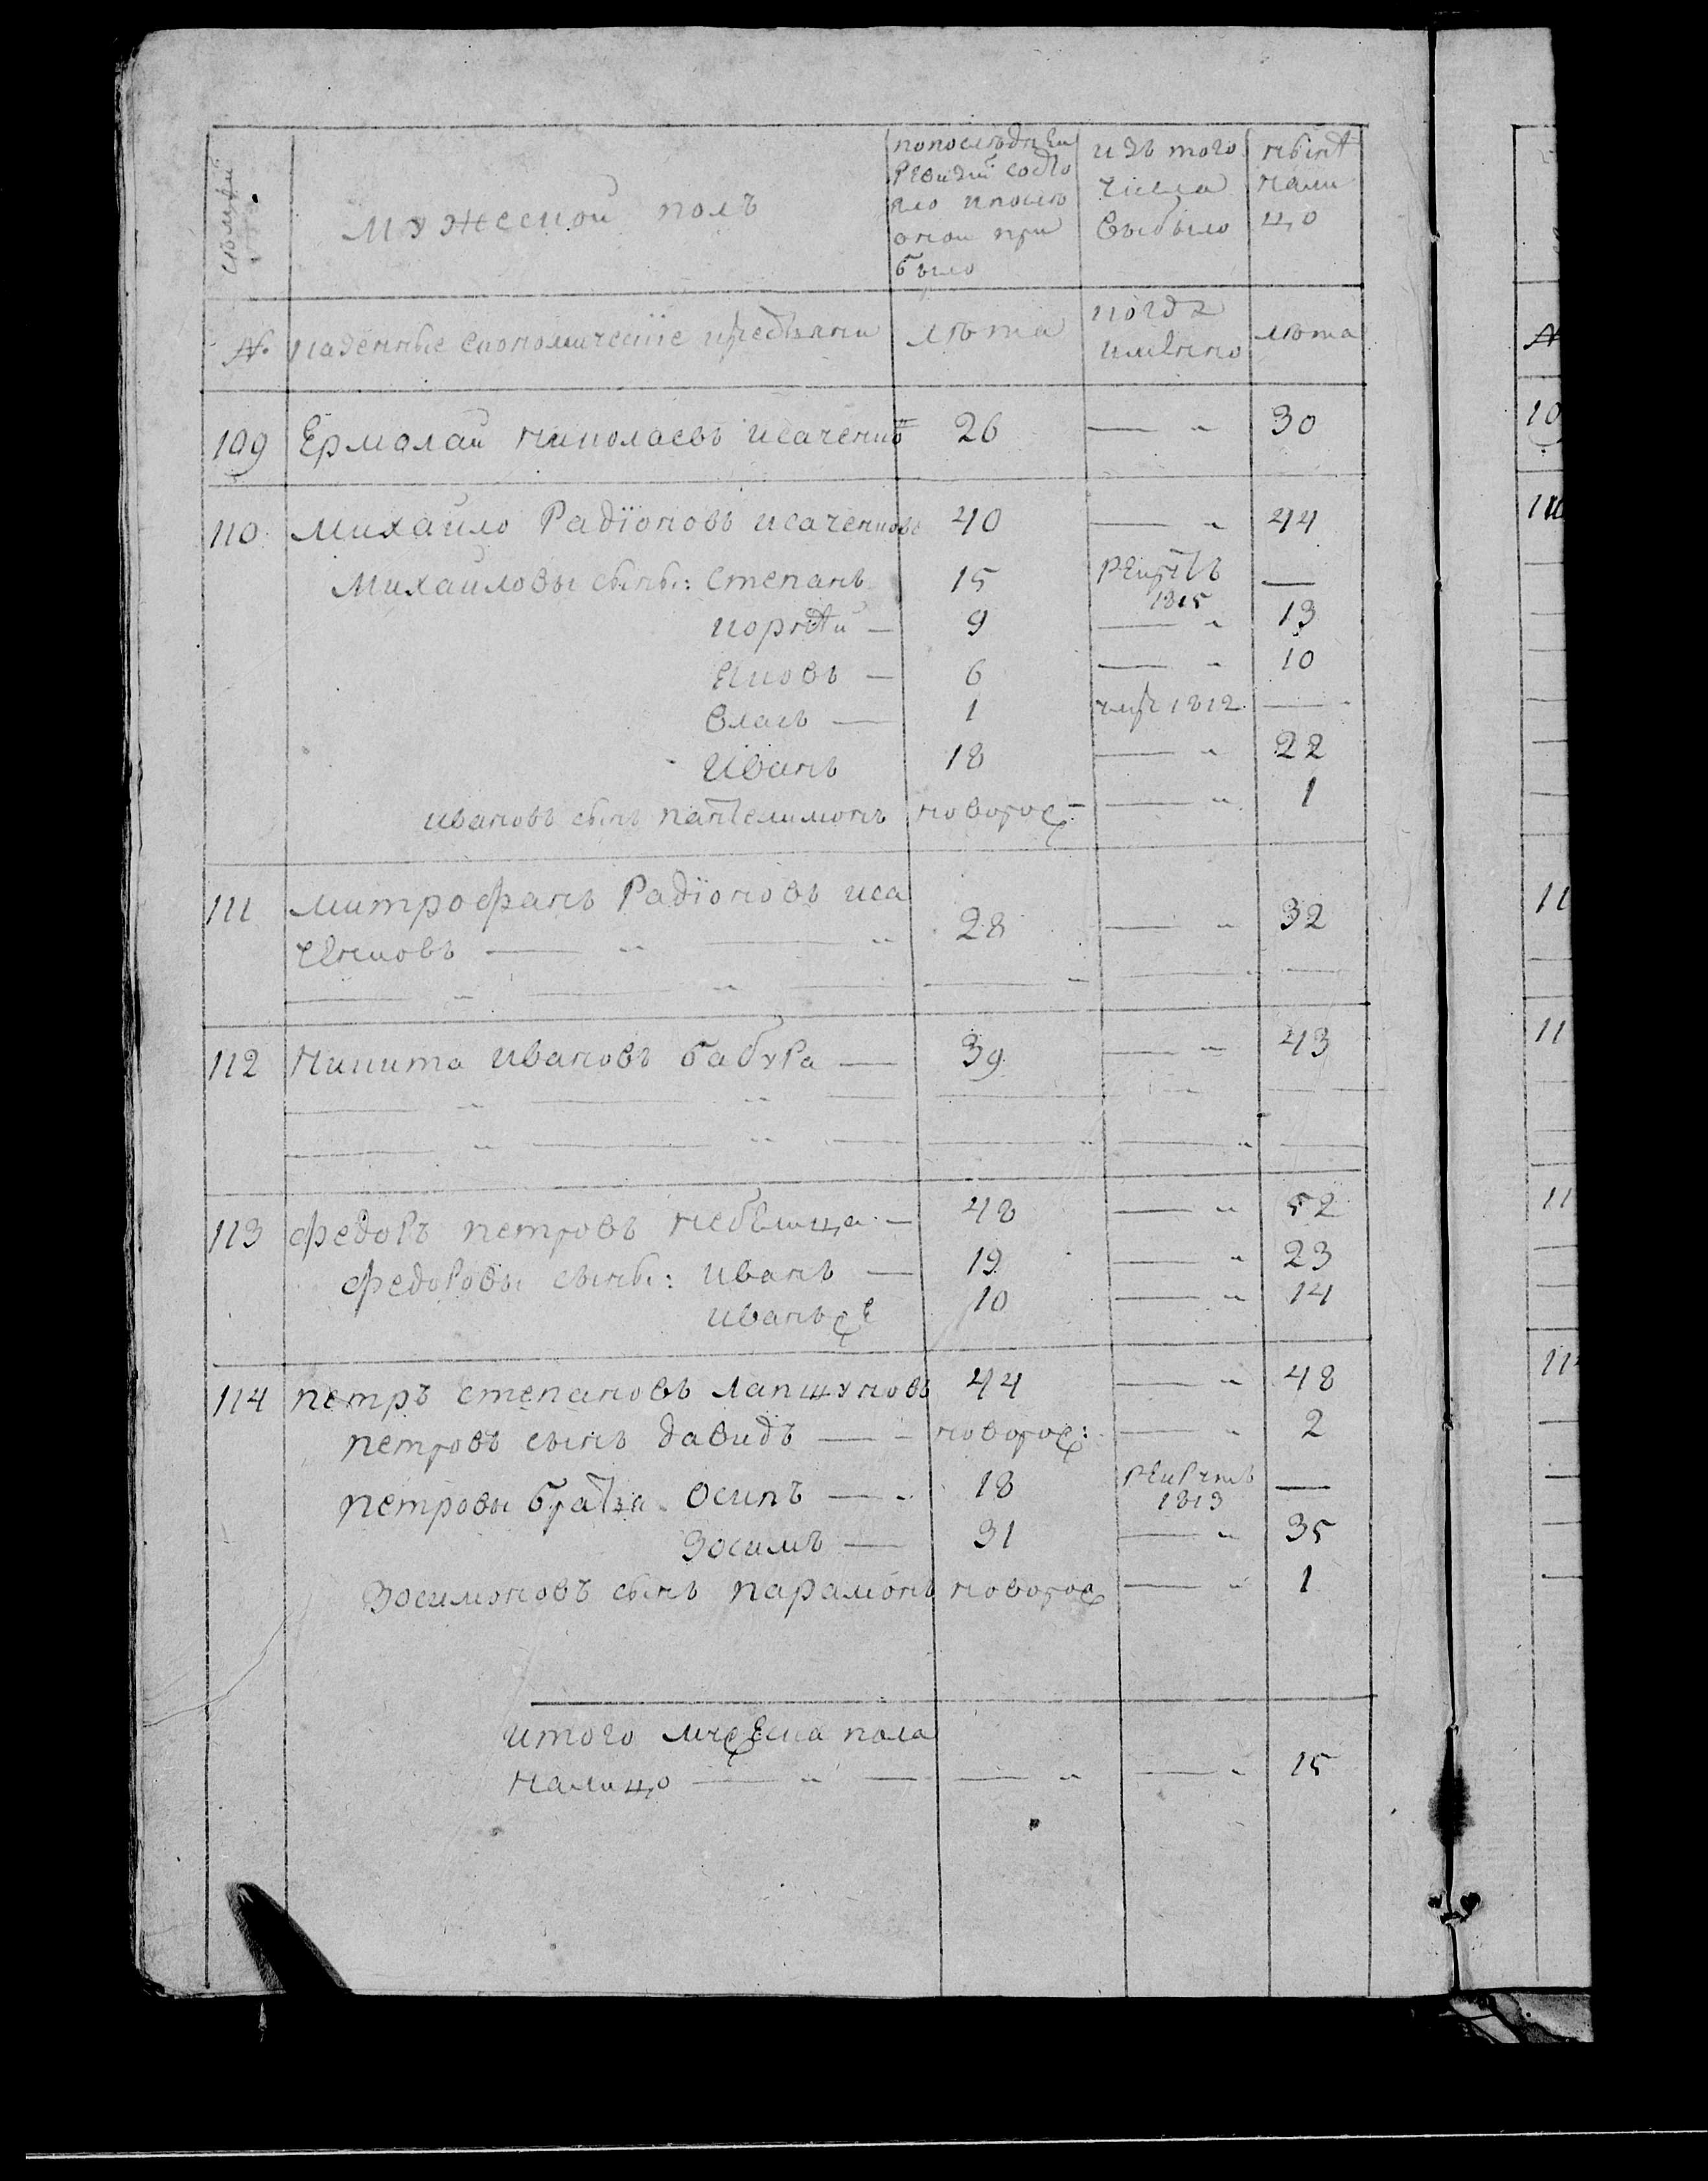 семьи
мужеской полъ
попоследнеи
Ревизiи состо
яло ипосле
оной при
было
изъ того
числа
выбыло
ныне
нали
цо
№ казенные економическiе крестьяни лѣта
когда
имянно
лѣта
109 Ермолаи николаевъ исаченковъ 26 — „ 30
110 Михаило Радiоновъ исаченковъ 40 — „ 44
Михаиловы сыны: степанъ 15 рекрутъ 1815 —
корнѣй — 9 — „ 13
яковъ — 6 — „ 10
власъ — 1 умре 1812 —
Иванъ 18 — „ 22
ивановъ сынъ пантелимонъ новорож — „ 1
111 митрофанъ Радiоновъ иса
ченковъ — „ — „ 28 — „ 32
112 никита ивановъ бабура — 39 — „ 43
113 федоръ петровъ небылица — 48 — „ 52
федоровы сыны: иванъ — 19 — „ 23
иванъ же 10 — „ 14
114 петръ степановъ лапщуновъ 44 — „ 48
петровъ сынъ давидъ — новорож: — „ 2
петровы братья осипъ — 18 рекрутъ 1813 —
Зосимъ — 31 — „ 35
Зосимоновъ сынъ парамонъ новорож — „ 1
итого мужеска пола
налицо — „ — — „ — „ 15
№
10
110
11
11
11
11